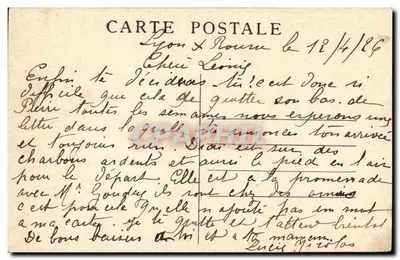 CARTE POSTALE
Lyon x Rouen le 12/4/26
Chère Léonie
Enfin te décideras tu? c'est donc si
difficile que cela de quitter son bas. de
Pierre toutes les semaines nous esperons une
lettre dans laquelle tu annonces ton arrivée
et toujours rien. Didi est sur des
charbons ardents et aussi le pied en l'air
pour le départ. Elle est a la promenade
avec Mr ils sont chez des amis
c'est pour cela qu'elle n'ajoute pas un mot
a ma carte. Je te quitte et t'attend bientot
De bons baisers a toi et a ta maman.
Lucie Nicolas